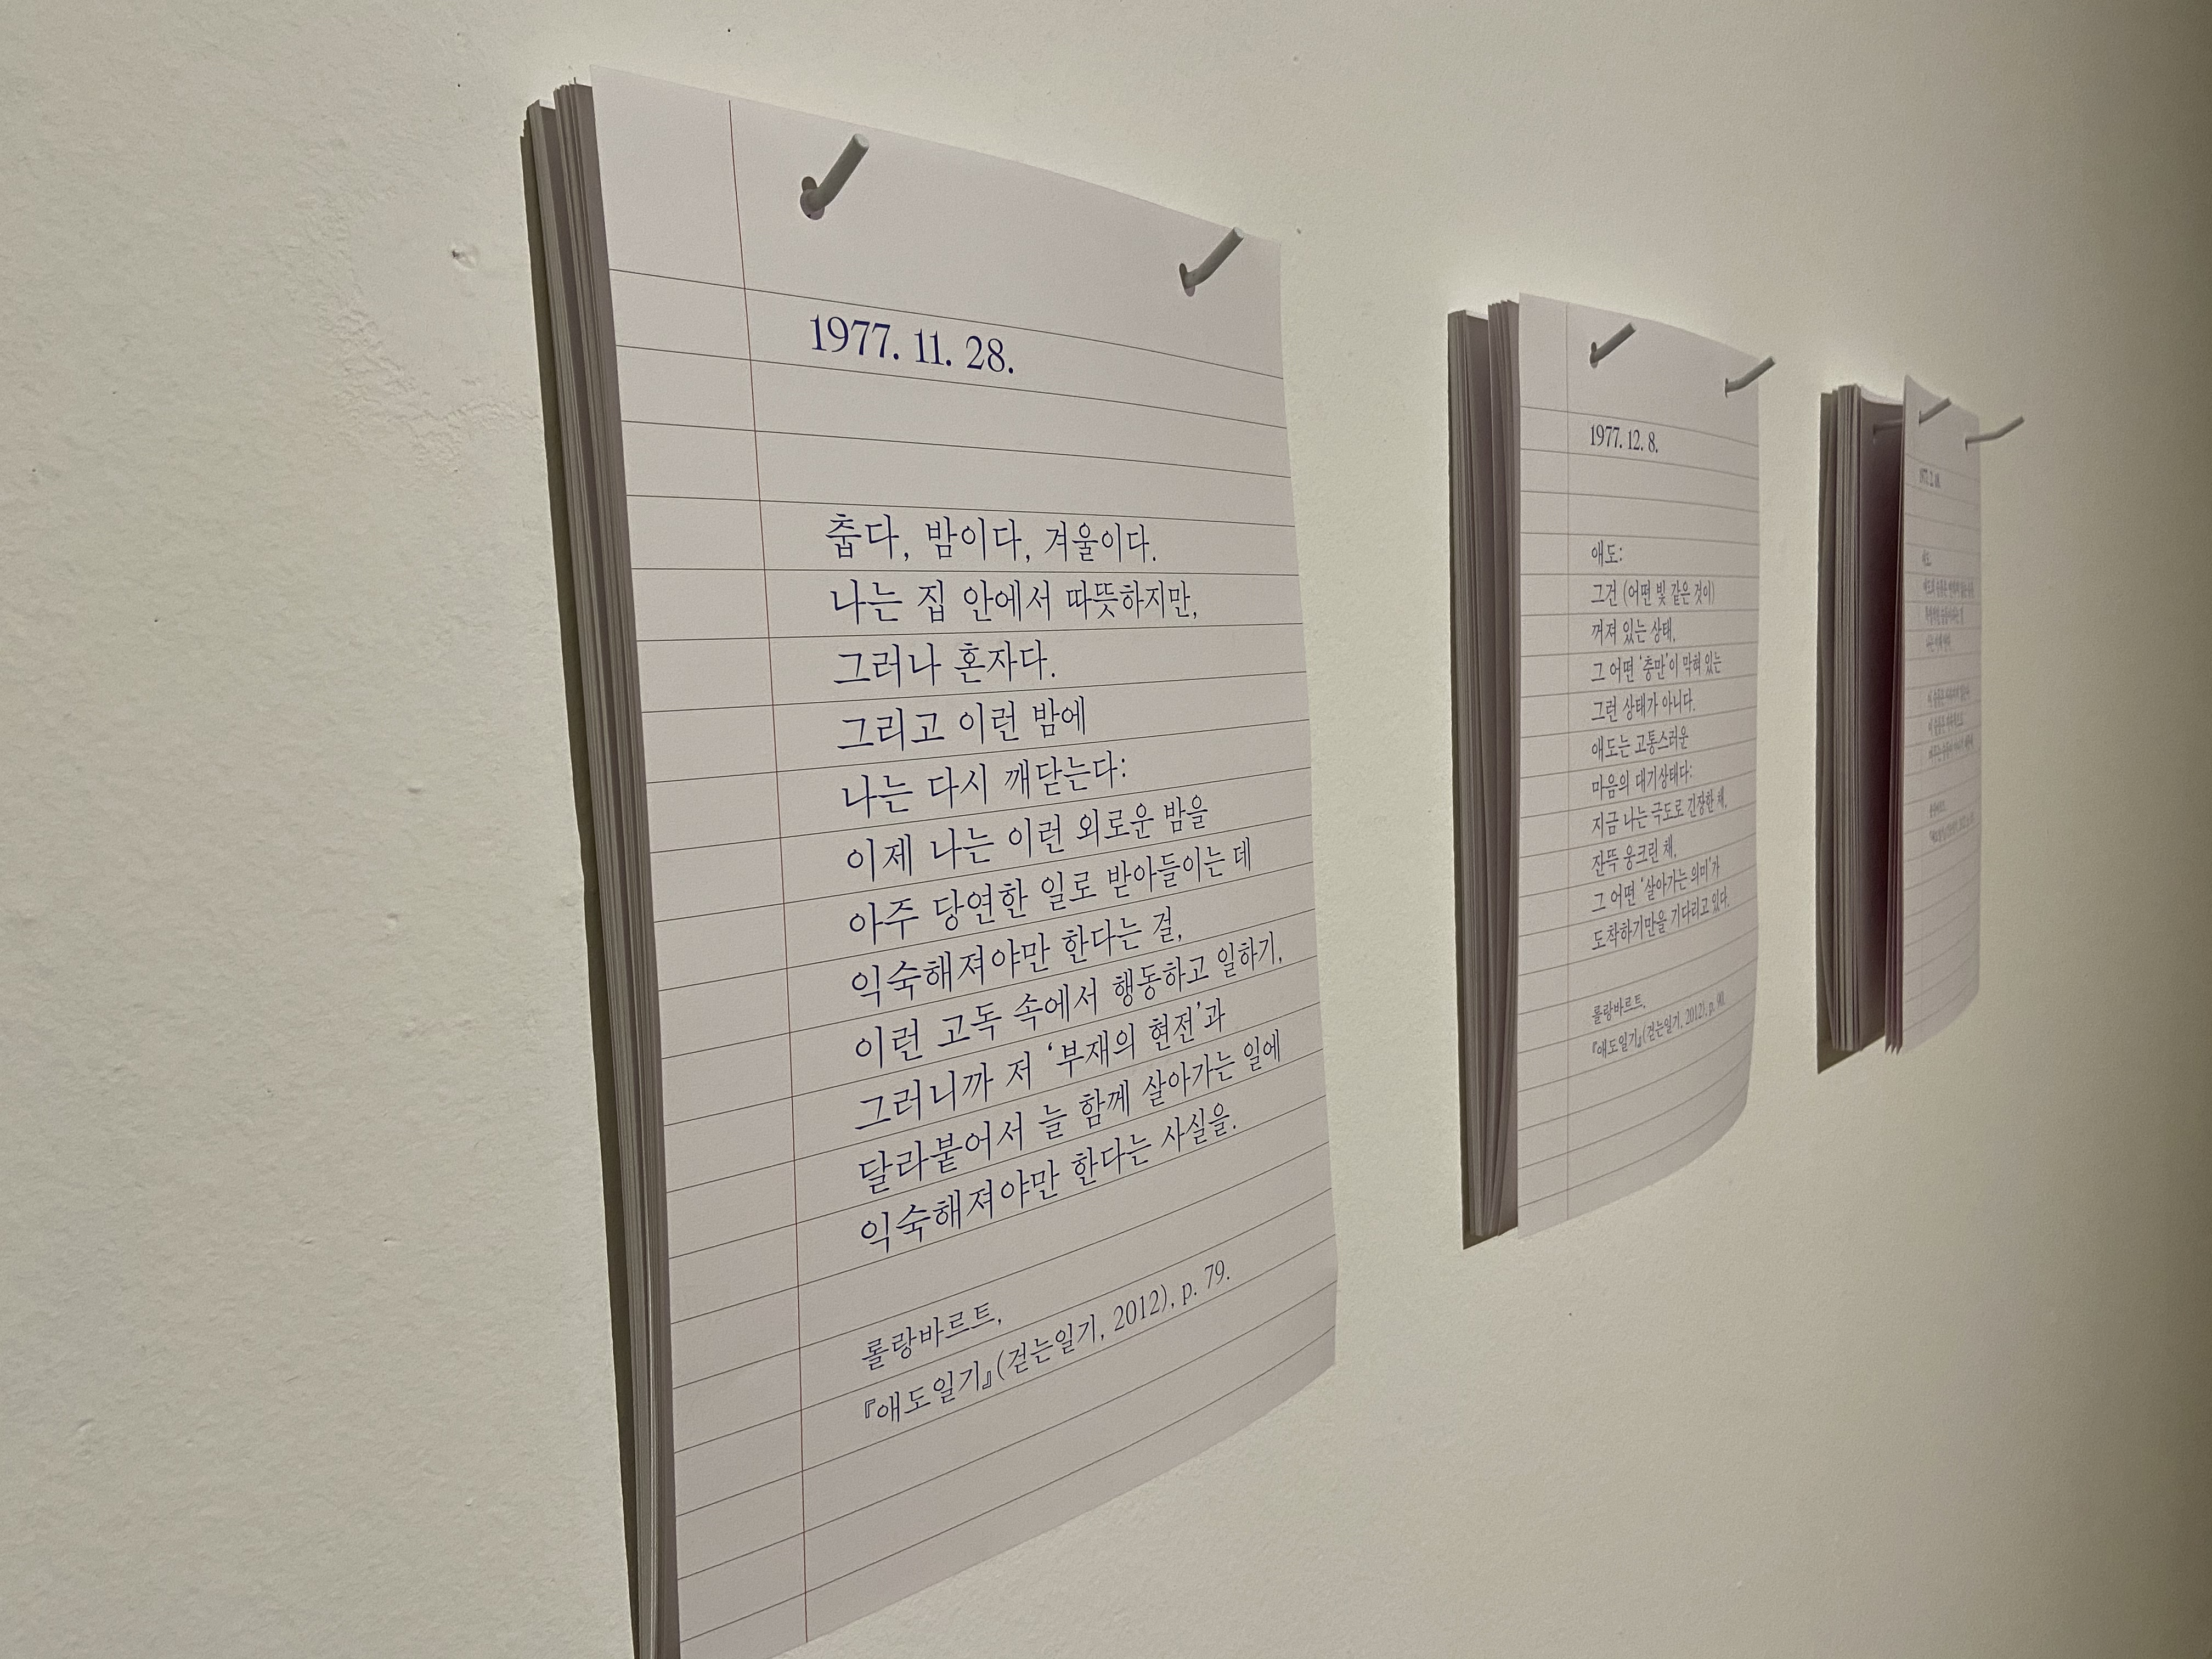 1977. 11. 28.
춥다, 밤이다, 겨울이다.
나는 집 안에서 따뜻하지만,
그러나 혼자다.
그리고 이런 밤에
나는 다시 깨닫는다:
이제 나는 이런 외로운 밤을
아주 당연한 일로 받아들이는 데
익숙해져야만 한다는 걸,
이런 고독 속에서 행동하고 일하기,
그러니까 저 ‘부재의 현전’과
달라붙어서 늘 함께 살아가는 일에
익숙해져야만 한다는 사실을.
롤랑바르트,
『애도일기』(걷는일기, 2012), p. 79.
1977. 12. 8.
애도:
그건 (어떤 빛 같은 것이)
꺼져 있는 상태,
그 어떤 ‘충만’이 막혀 있는
그런 상태가 아니다.
애도는 고통스러운
마음의 대기상태다:
지금 나는 극도로 긴장한 채,
잔뜩 웅크린 채,
그 어떤 ‘살아가는 의미’가
도착하기만을 기다리고 있다.
롤랑바르트,
『애도일기』(걷는일기, 2012), p. 90.